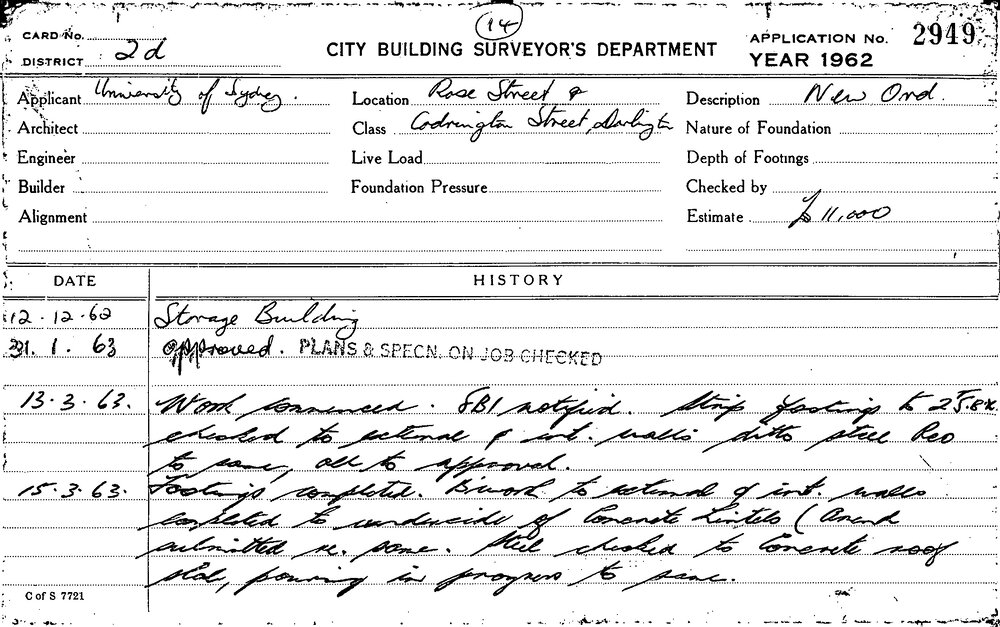 14
CARD No.
DISTRICT 2d
CITY BUILDING SURVEYOR'S DEPARTMENT
APPLICATION No. 2949
YEAR 1962
Applicant University of Sydney.
Location Rose Street &
Description New Ord.
Architect
Class Codrington Street, Darlington
Nature of Foundation
Engineer
Live Load
Depth of Footings
Builder
Foundation Pressure
Checked by
Alignment
Estimate £11,000
DATE
HISTORY
12.12.62 Storage Building
31.1.63 approved. PLANS & SPECN. ON JOB CHECKED
13.3.63. Work commenced. SBI notified. Strip footings to
checked to external & int. walls ditto steel Reo
to same, all to approval.
15.3.63. Footings completed. B'work to external & int. walls
completed to underside of Concrete Lintels (Amend
submitted re. same. Steel checked to Concrete roof
slab, pouring in progress to same.
C of S 7721